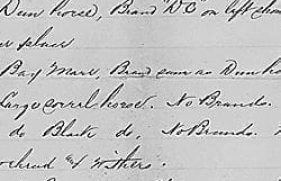 Dun horse, Brand "D.C" on left
place
Bay Mare, Brand same as Dun ho
Large sorrel horse. No Brands.
do Black do, No Brands.
and Withers.